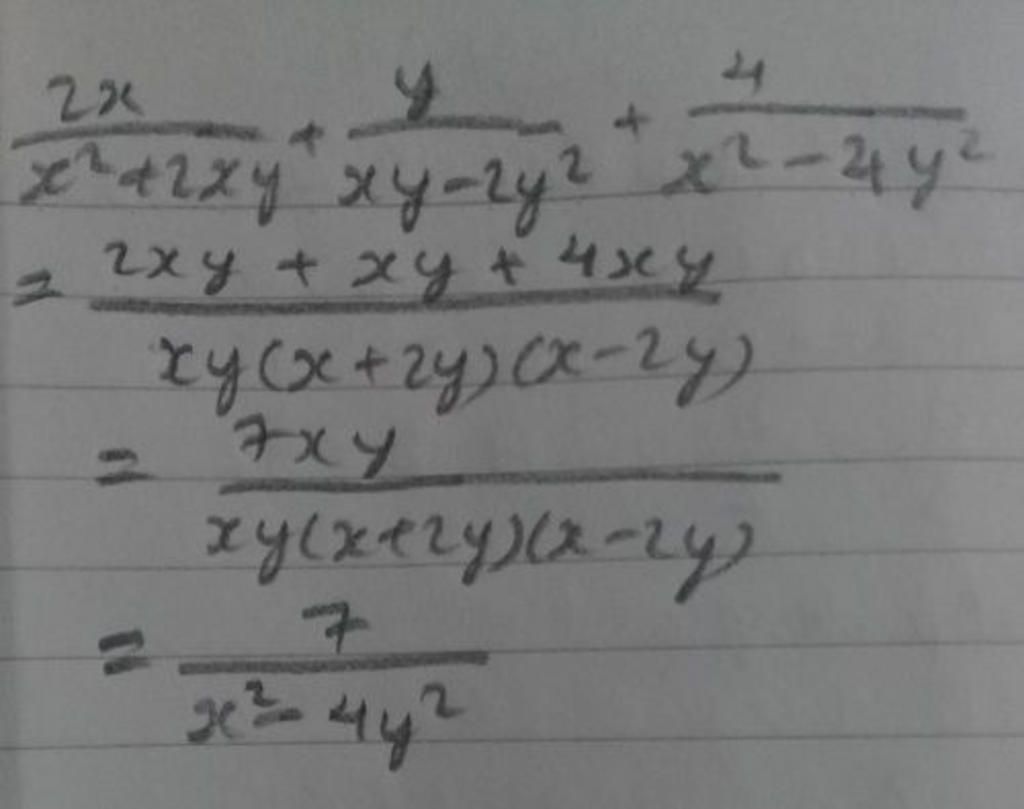 2x/(x²+2xy) + y/(xy-2y²) + 4/(x²-4y²)
= (2xy + xy + 4xy)/(xy(x+2y)(x-2y))
= 7xy/(xy(x+2y)(x-2y))
= 7/(x²-4y²)